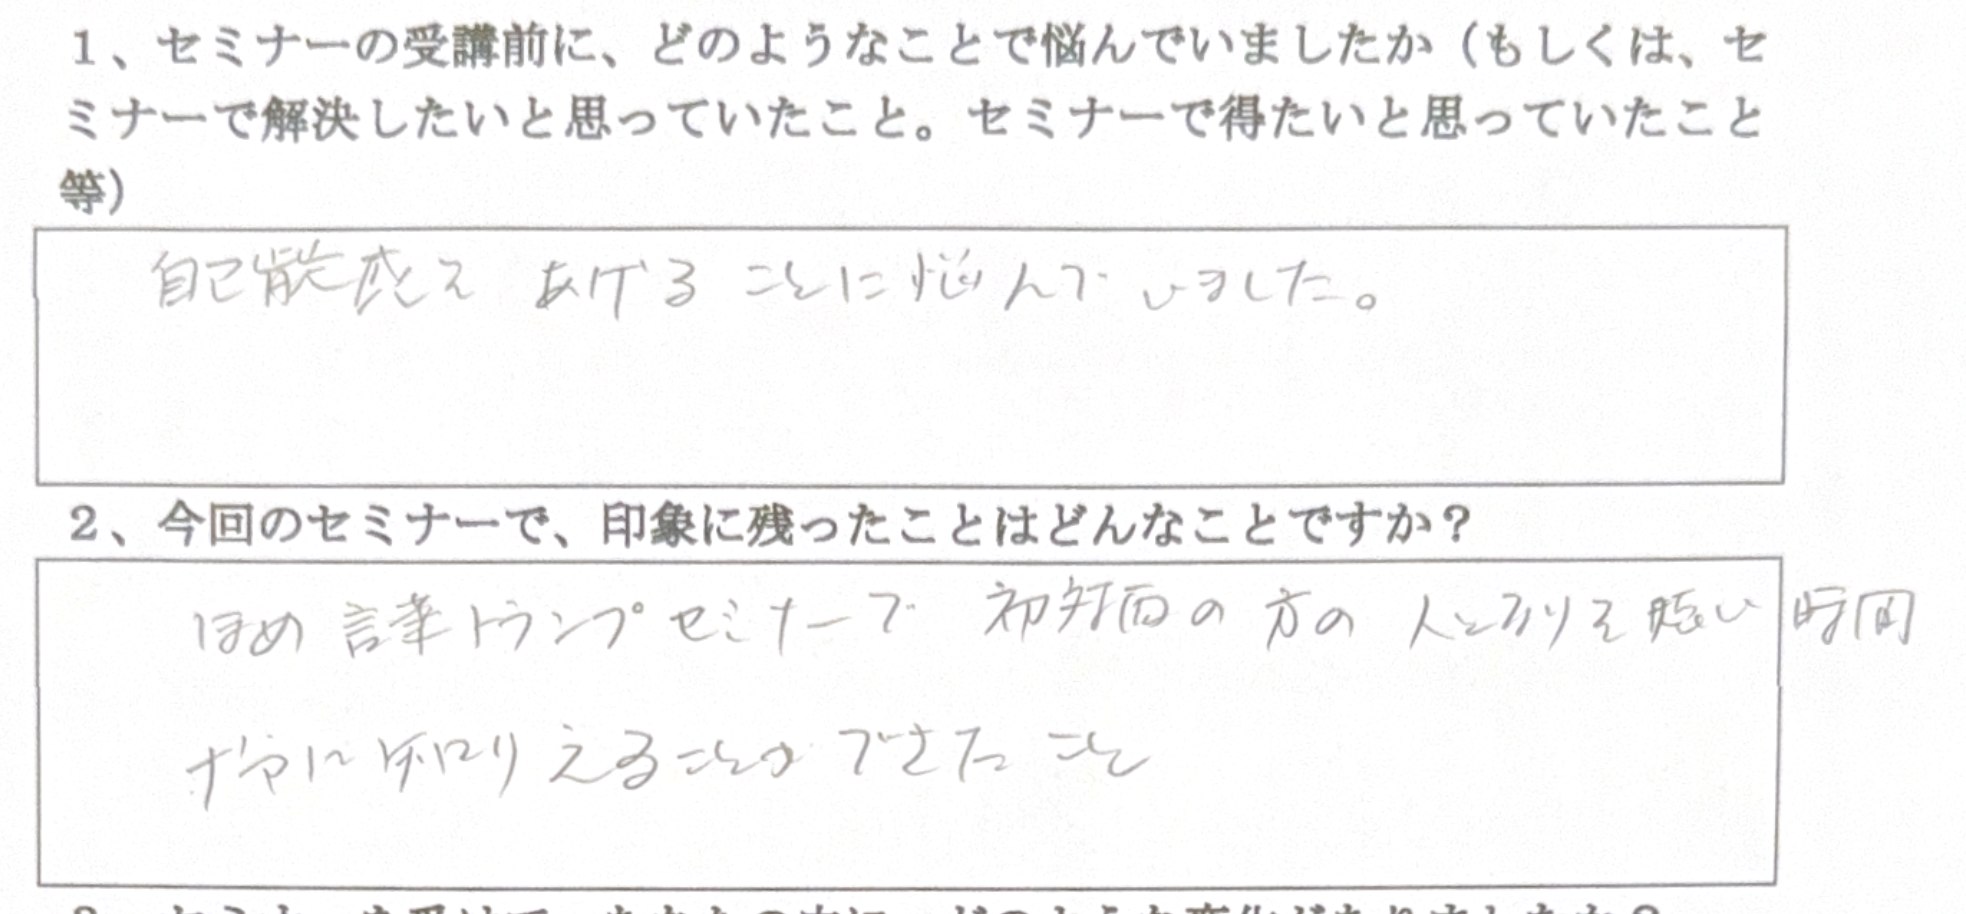 1、セミナーの受講前に、どのようなことで悩んでいましたか（もしくは、セ
ミナーで解決したいと思っていたこと。セミナーで得たいと思っていたこと
等）
自己能感をあげることに悩んでいました。
2、今回のセミナーで、印象に残ったことはどんなことですか？
ほめ言葉トランプセミナーで 初対面の方の人となりを短い時間
で 知りえることができたこと